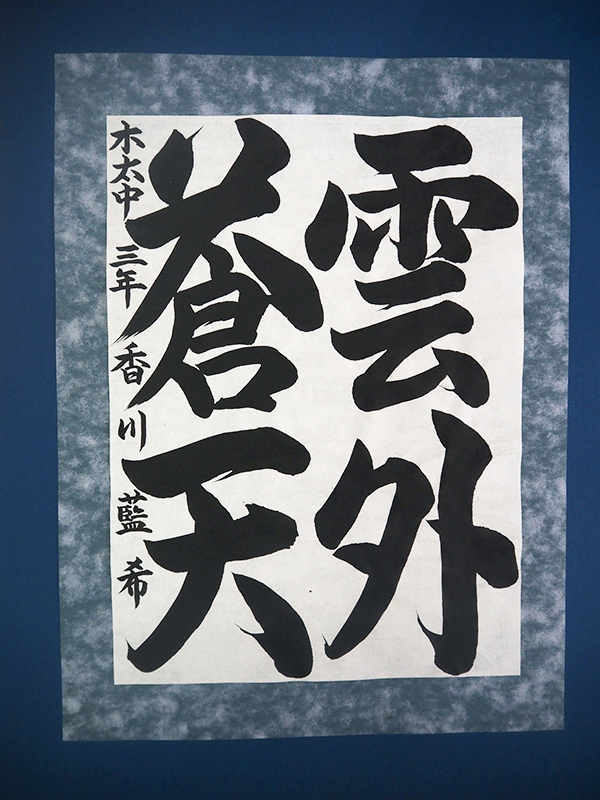 雲外
蒼天
木太中 三年 香川 藍希